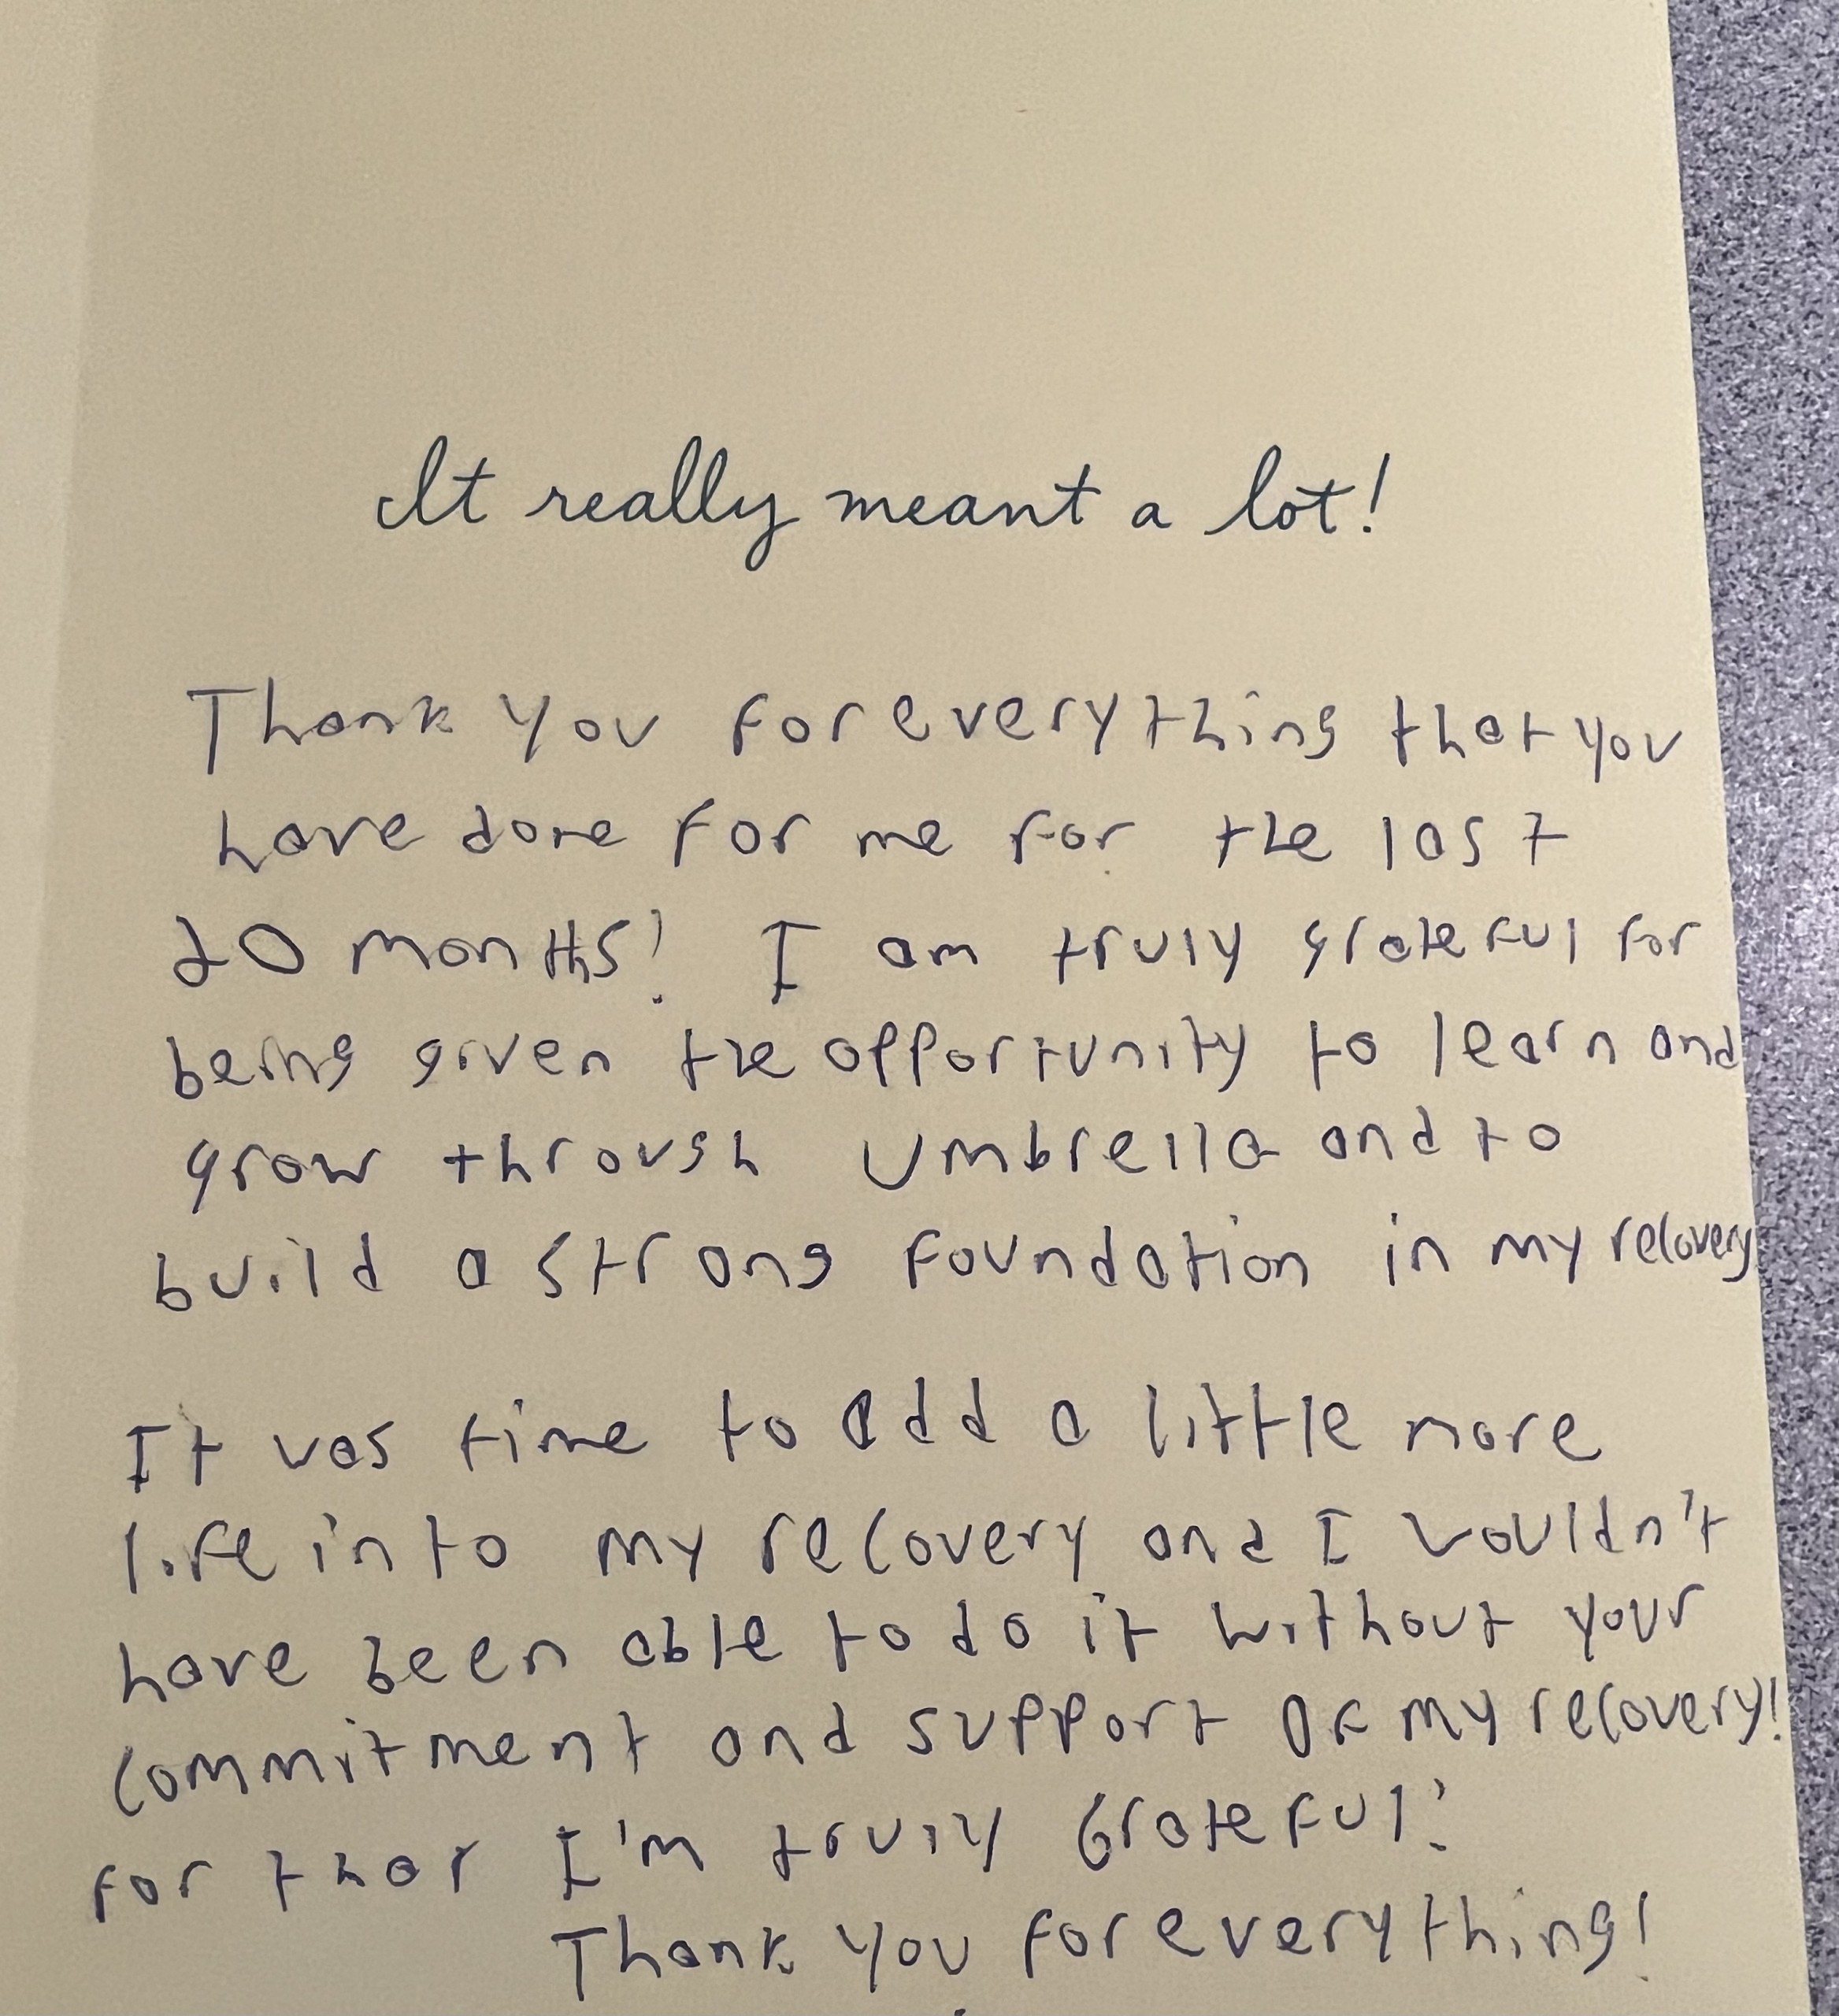 It really meant a lot!
Thank you for everything that you
have done for me for the last
20 months! I am truly grateful for
being given the opportunity to learn and
grow through Umbrella and to
build a strong foundation in my recovery
It was time to add a little more
life into my recovery and I wouldn't
have been able to do it without your
commitment and support of my recovery!
for that I'm truly Grateful!
Thank you for everything!